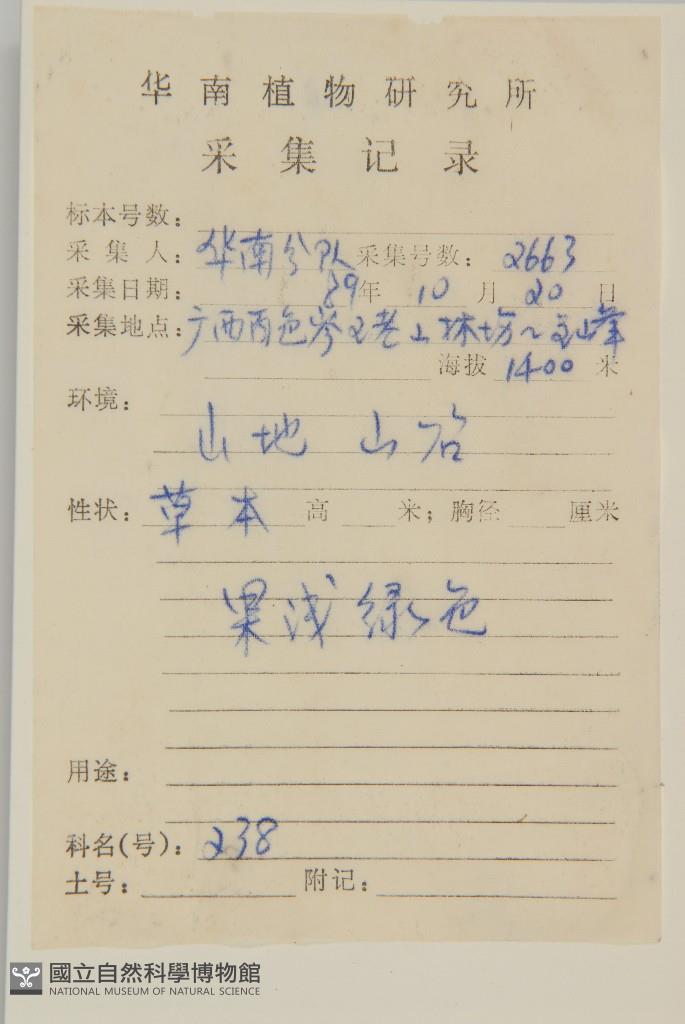 华南植物研究所
采集记录
标本号数:
采集人: 华南分队 采集号数: 2663
采集日期: 89年 10 月 20 日
采集地点: 广西百色岑王老山林场~主山峰
海拔 1400 米
环境:
山地 山沿
性状: 草本 高 米; 胸径 厘米
果浅绿色
用途:
科名(号): 238
土号: 附记:
國立自然科學博物館
NATIONAL MUSEUM OF NATURAL SCIENCE